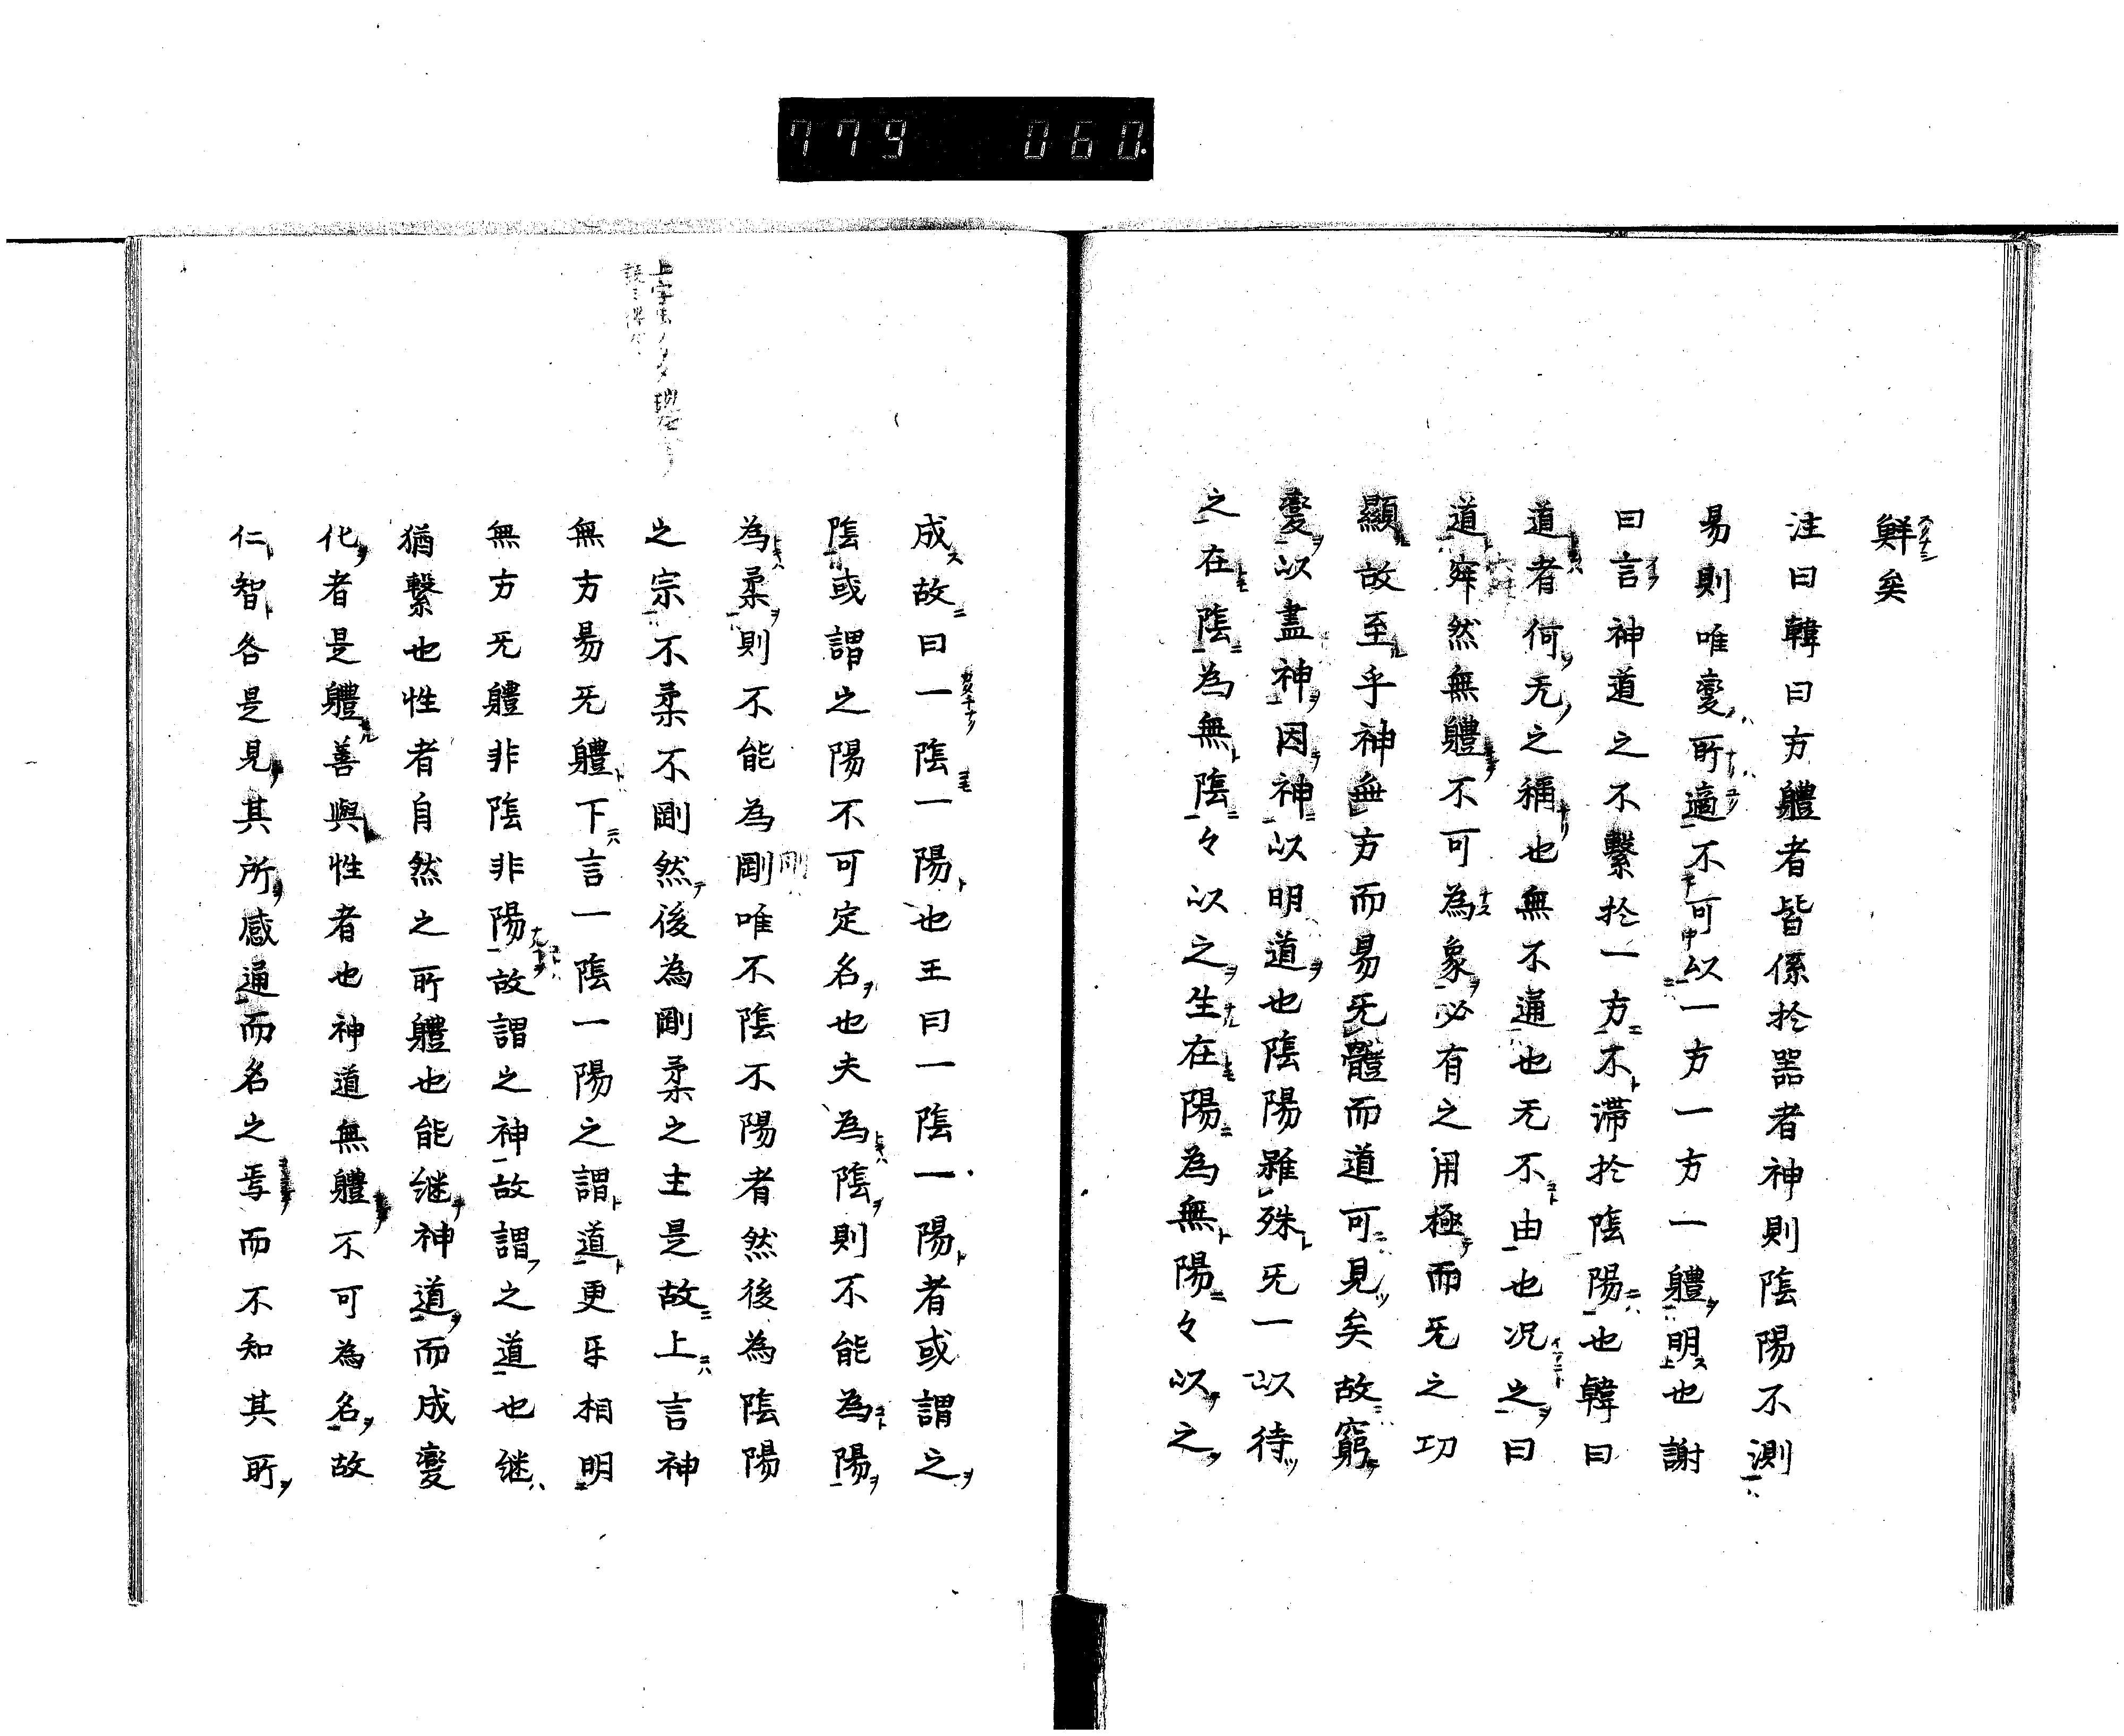 779 060
鮮矣
注曰韓曰方軆者皆係扵器者神則陰陽不測
易則唯變所適不可以一方一方一軆明也謝
曰言神道之不繫扵一方不滞扵陰陽也韓曰
道者何无之稱也無不通也无不由也况之曰
道寂然無軆不可為象必有之用極而无之功
顯故至乎神無方而易无體而道可見矣故窮
變以盡神因神以明道也陰陽雖殊无一以待
之在陰為無陰々以之生在陽為無陽々以之
成故曰一陰一陽也王曰一陰一陽者或謂之
陰或謂之陽不可定名也夫為陰則不能為陽
為柔則不能為剛唯不陰不陽者然後為陰陽
之宗不柔不剛然後為剛柔之主是故上言神
無方易无軆下言一陰一陽之謂道更㸦相明
無方无軆非陰非陽故謂之神故謂之道也継
猶繫也性者自然之所軆也能継神道而成變
化者是軆善與性者也神道無軆不可為名故
仁智各是見其所感通而名之焉而不知其所